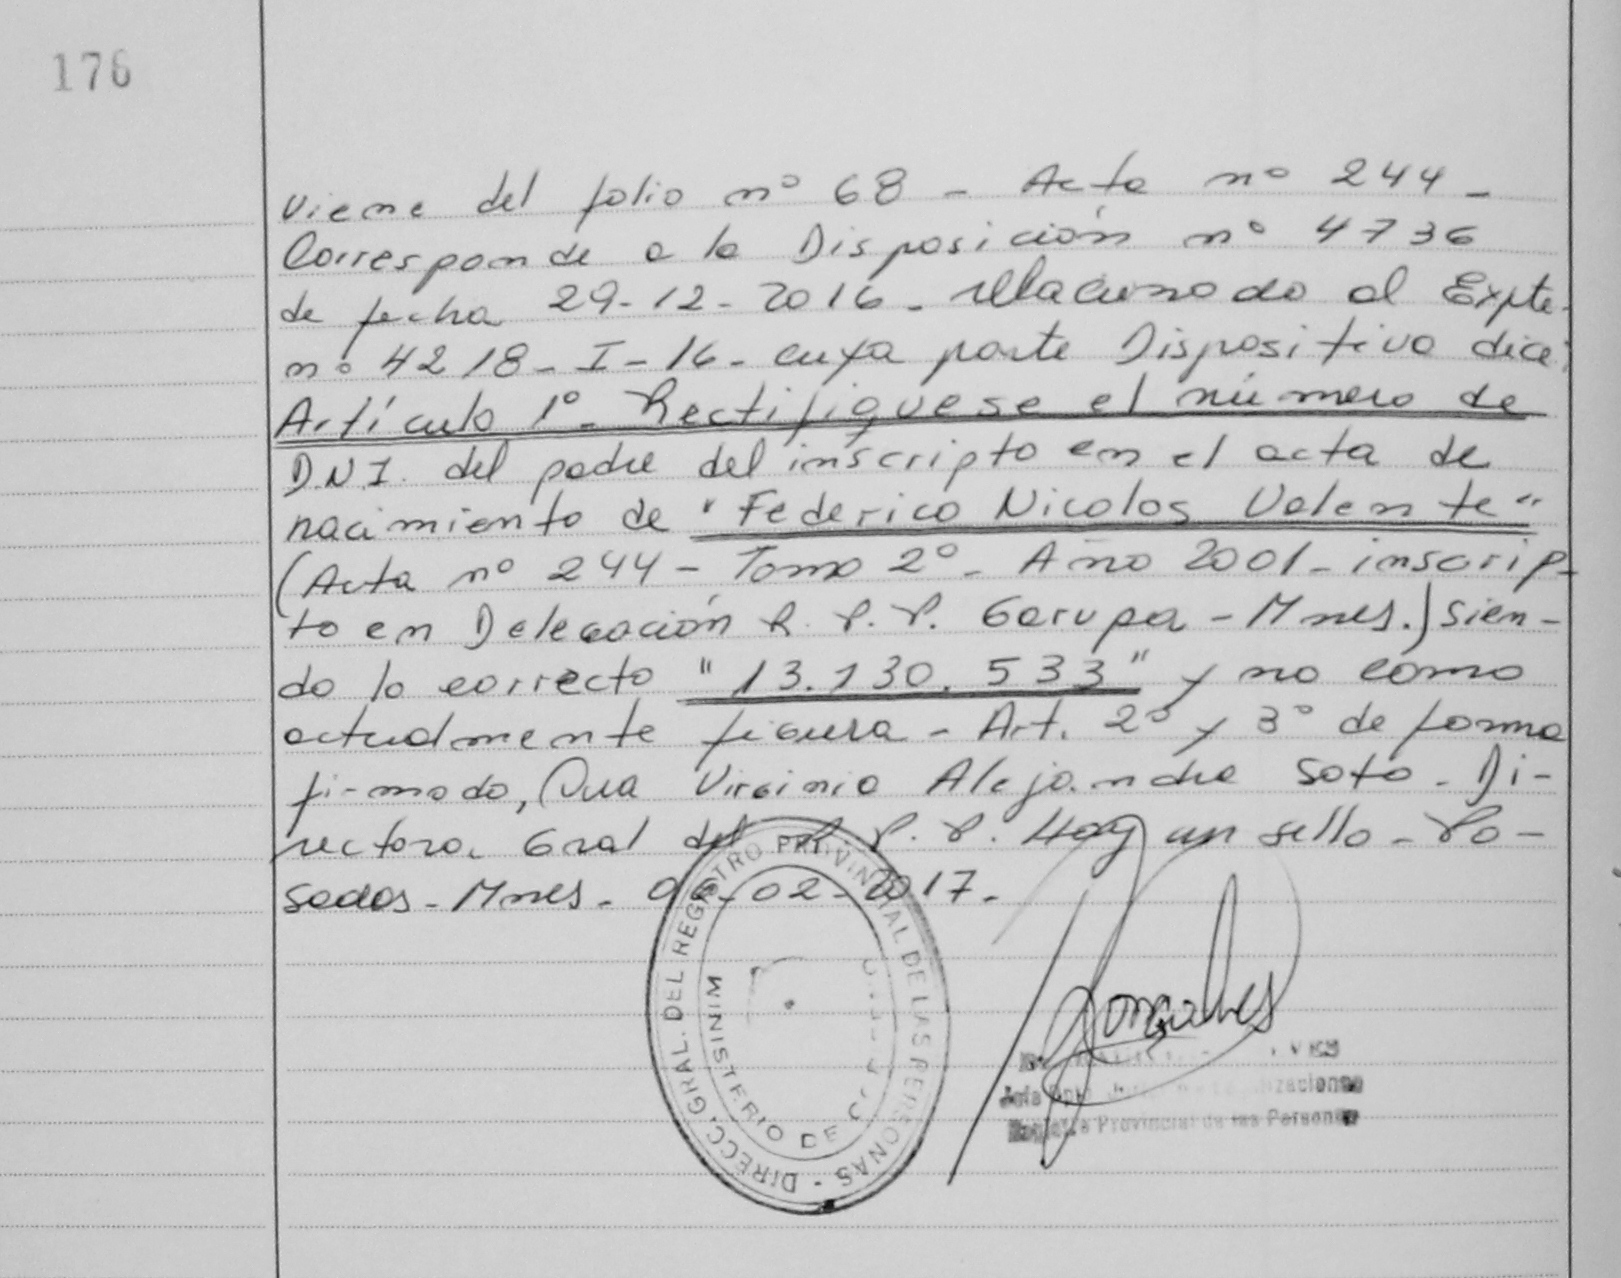 176
Viene del folio nº 68 - Acta nº 244 -
Corresponde a la Disposición nº 4736
de fecha 29-12-2016 - relacionado al Expte.
nº 4218 - I - 16 - cuya parte Dispositiva dice:
Artículo 1º - Rectifiquese el número de
D.N.I. del padre del inscripto en el acta de
nacimiento de "Federico Nicolas Valente"
(Acta nº 244 - Tomo 2º - Año 2001 - inscrip-
to en Delegación R.P.P. Garupa - Mnes.) sien-
do lo correcto "13.130.533" y no como
actualmente figura - Art. 2º y 3º de forma
firmado, Dra Virginia Alejandra Soto - Di-
rectora Gral del R.P.P. Hay un sello - Po-
sadas - Mnes - 06-02-2017 -
DIRECC. GRAL. DEL REGISTRO PROVINCIAL DE LAS PERSONAS -
MINISTERIO DE
Registro Provincial de las Personas